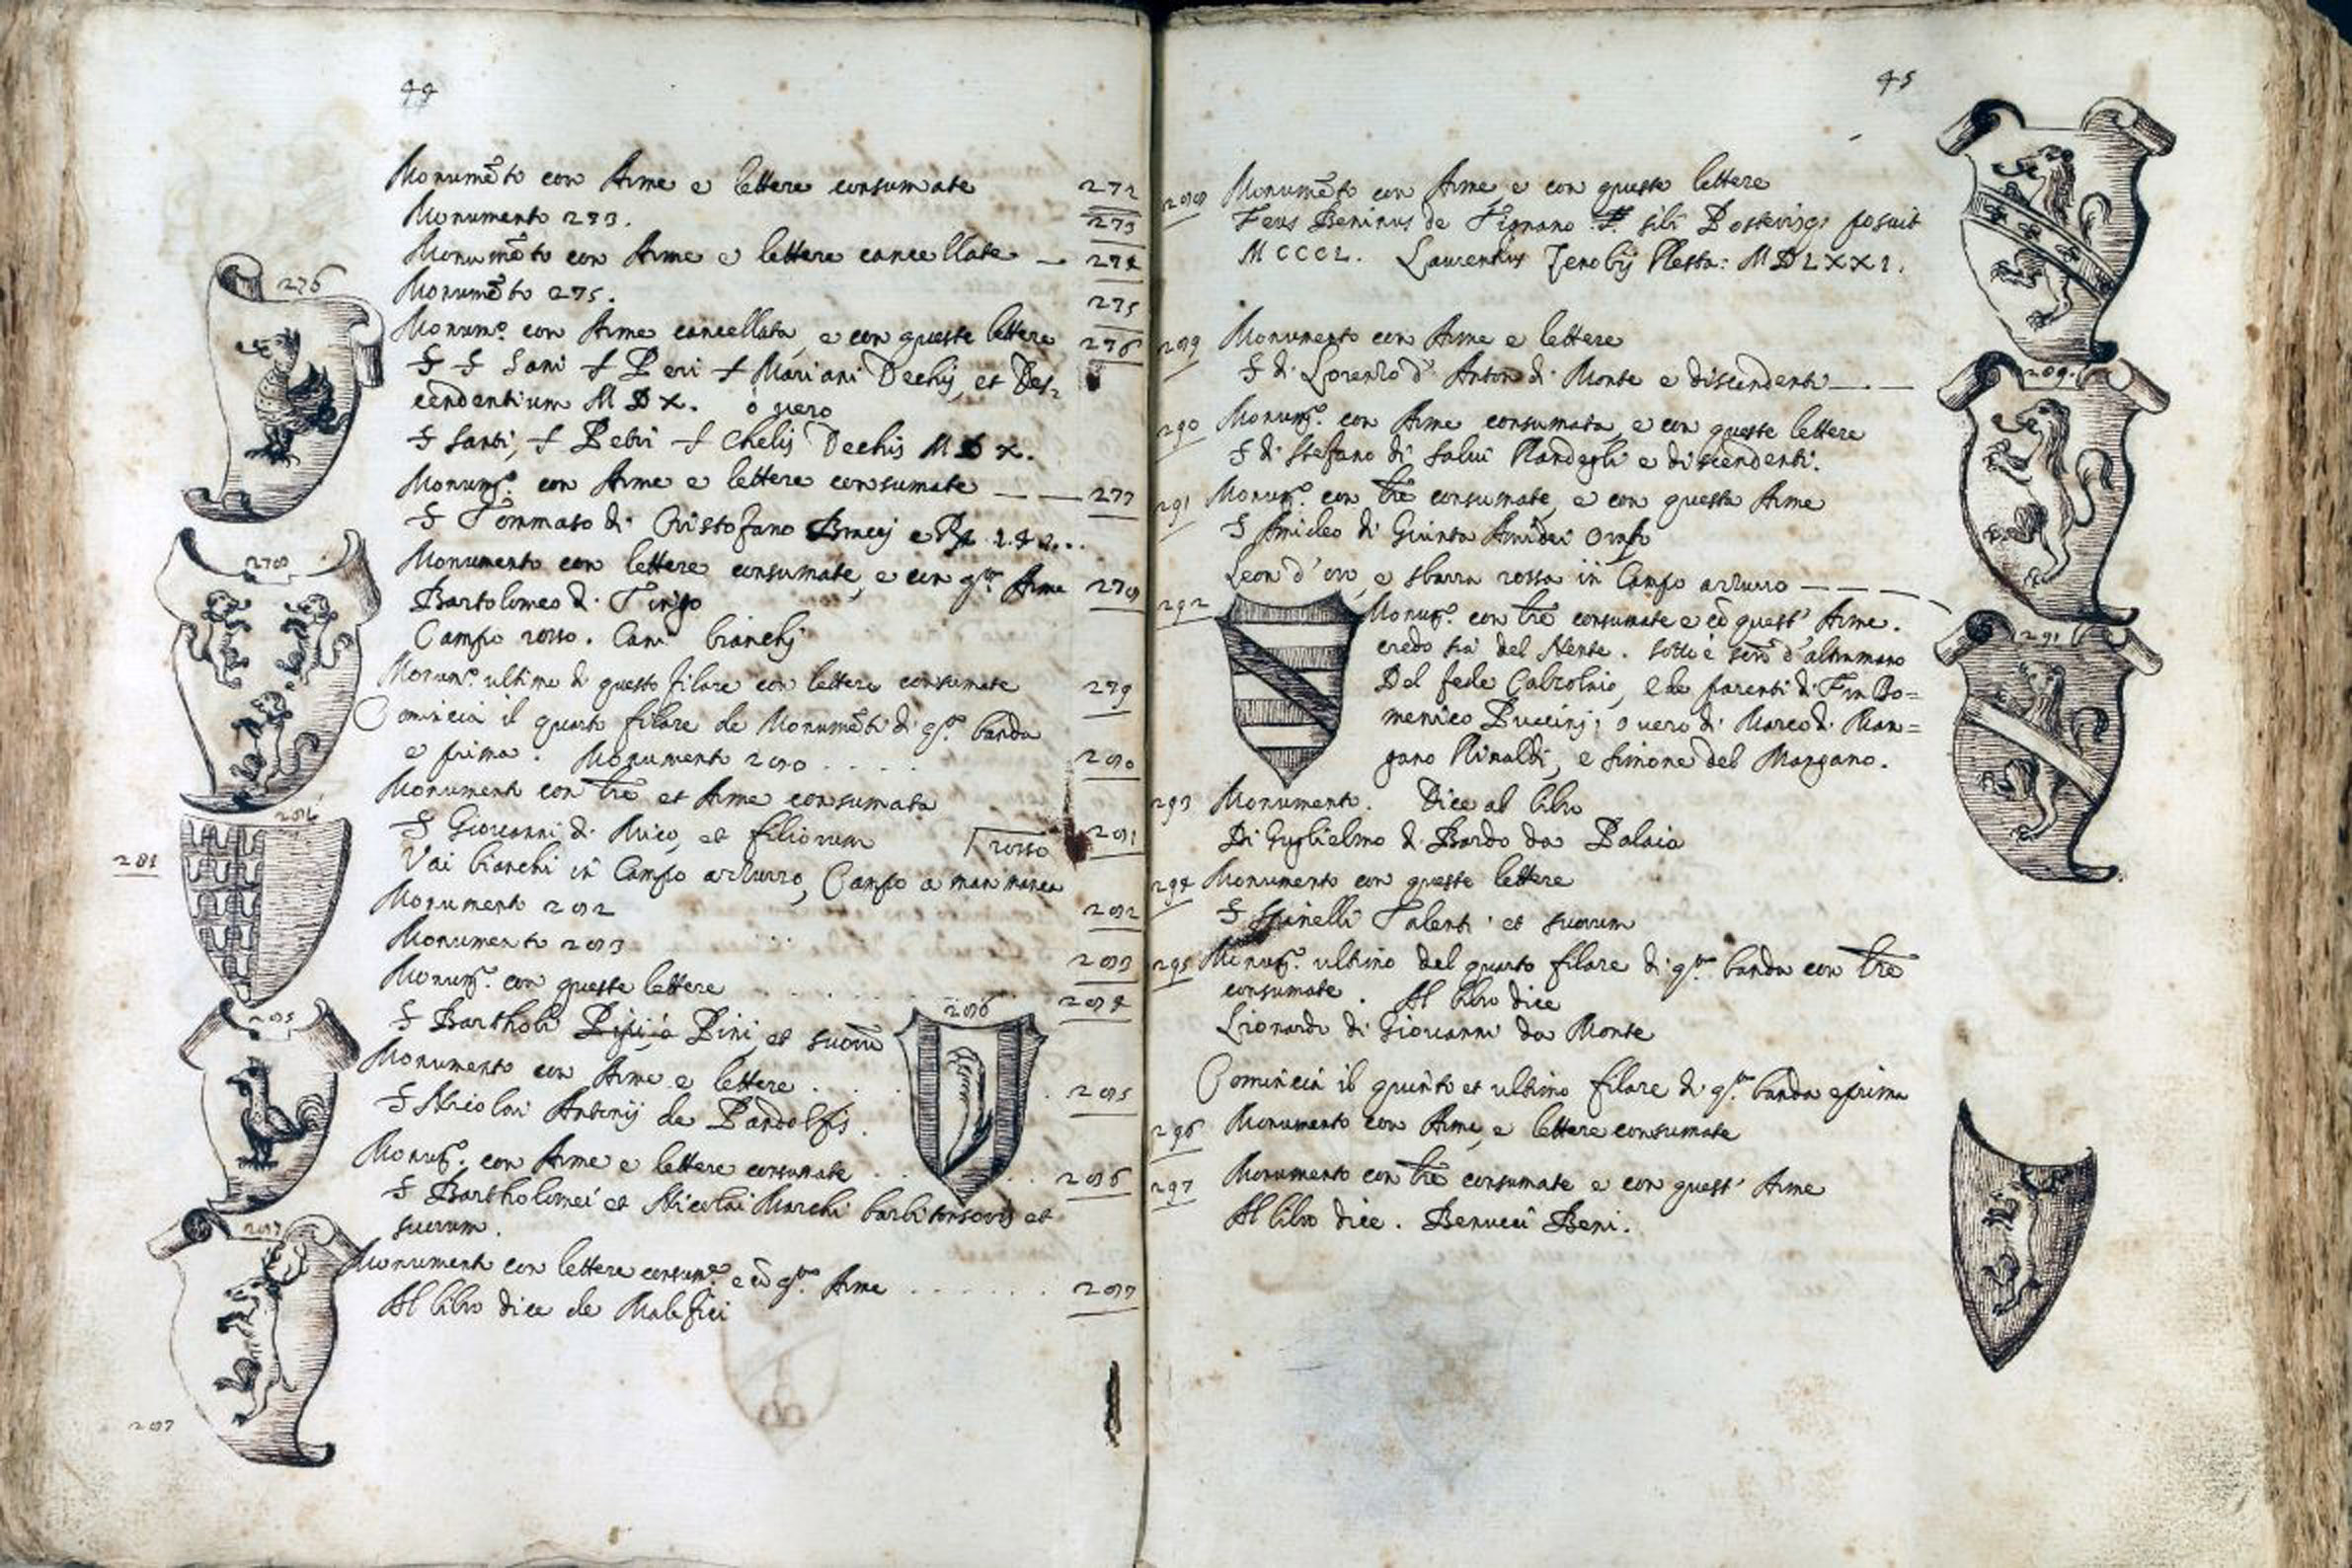 44
Monumẽto con Arme e lettere consumate 272
Monumento 273. 273
Monumẽto con Arme e lettere cancellate 274
Monumẽto 275. 275
Monum.º con Arme cancellata, e con queste lettere 276
S S Sani S Peri S Mariani Dechij, et Des-
cendentium M D X. ò vero
S Santi, S Petri S Chelis Dechis M D X.
Monum.º con Arme e lettere consumate 277
S Tommaso di Cristofano
Monumento con lettere consumate, e con q.ta Arme 278
Bartolomeo di
Campo rosso. Cani bianchi
Monum.º ultimo di questo filare con lettere consumate 279
Comincia il quarto filare de Monumẽti di q.ta banda
e prima. Monumento 280 280
Monumento con lr̃e et Arme consumata
S Giovanni di Rico, et filiorum rosso 281
Vai bianchi in Campo azzurro, Campo a man manca
Monumento 282 282
Monumento 283 283
Monum.º con queste lettere 284
S Bartholi Pini, et suorũ
Monumento con Arme e lettere 285
S Nicolai Antonij de Pandolfis.
Monum.º con Arme e lettere consumate 286
S Bartholomei et Nicolai Marchi barbitonsoris et
suorum.
Monumento con lettere consum.e e cõ q.ta Arme 287
Al libro dice de Malefici
276
278
281
281
285
286
287
287
45
288 Monumẽto con Arme e con queste lettere
Feus Beninus de Pignano sibi Posterisq; posuit
M CCCL. Laurentius Zenobij Resta: M D L X X I.
289 Monumento con Arme e lettere
S di Lorenzo d' Anton di Monte e discendenti
290 Monum.º con Arme consumata, e con queste lettere
S di Stefano di Salvi e discendenti.
291 Monum.º con lr̃e consumate, e con questa Arme
S Amideo di Giunta Amidei Orafo
Leon d'oro, e sbarra rossa in Campo azzurro
292 Monum.º con lr̃e consumate e cõ quest' Arme.
credo sia del Nente. d'altra mano
Del fede Calzolaio, e de parenti di Domenico
Puccini; o vero di Marco di Man=
gano Rinaldi, e Simone del Mangano.
293 Monumento. Dice al libro
Di Guglielmo di Bardo da Palaia
294 Monumento con queste lettere
S Spinelli Talenti et suorum
295 Monum.º ultimo del quarto filare di q.ta banda con lr̃e
consumate. Al libro dice
Lionardo di Giovanni da Monte
Comincia il quinto et ultimo filare di q.ta banda e prima
296 Monumento con Arme, e lettere consumate
297 Monumento con lr̃e consumate e con quest' Arme
Al libro dice. Benucci Beni.
289.
291